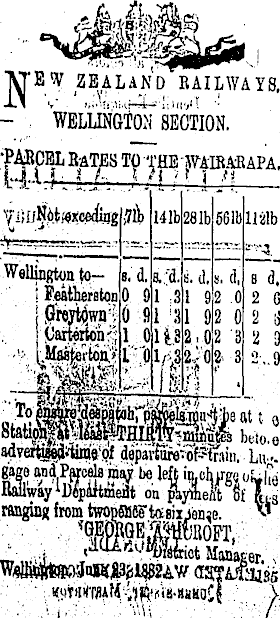 NEW ZEALAND RAILWAYS.
WELLINGTON SECTION.
PARCEL RATES TO THE WAIRARAPA.
Not exceeding 7lb 14lb 28lb 56lb 112lb
Wellington to— s. d. s. d. s. d. s. d. s d.
Featherston 0 9 1 3 1 9 2 0 2 6
Greytown 0 9 1 3 1 9 2 0 2 6
Carterton 1 0 1 3 2 0 2 3 2 9
Masterton 1 0 1 3 2 0 2 3 2 9
To ensure despatch, parcels must be at the
Station at least THIRTY minutes before
advertised time of departure of train. Lug-
gage and Parcels may be left in charge of the
Railway Department on payment of fees
ranging from twopence to sixpence.
GEORGE ASHCROFT,
District Manager.
Wellington, June 23, 1882